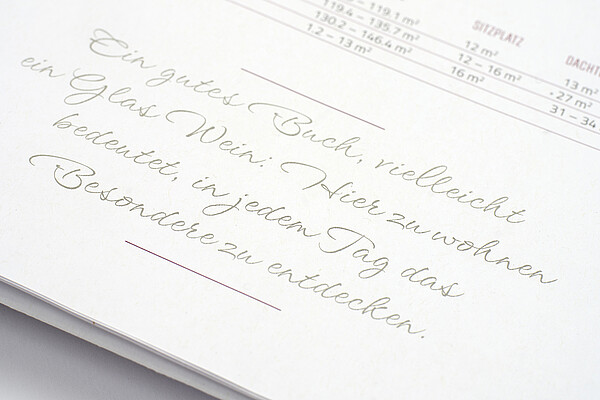 119.1 m²
119.4 – 135.7 m²
130.2 – 146.4 m²
1.2 – 13 m²
SITZPLATZ
12 m²
12 – 16 m²
16 m²
13 m²
27 m²
31 – 34
Ein gutes Buch, vielleicht
ein Glas Wein: Hier zu wohnen
bedeutet, in jedem Tag das
Besondere zu entdecken.